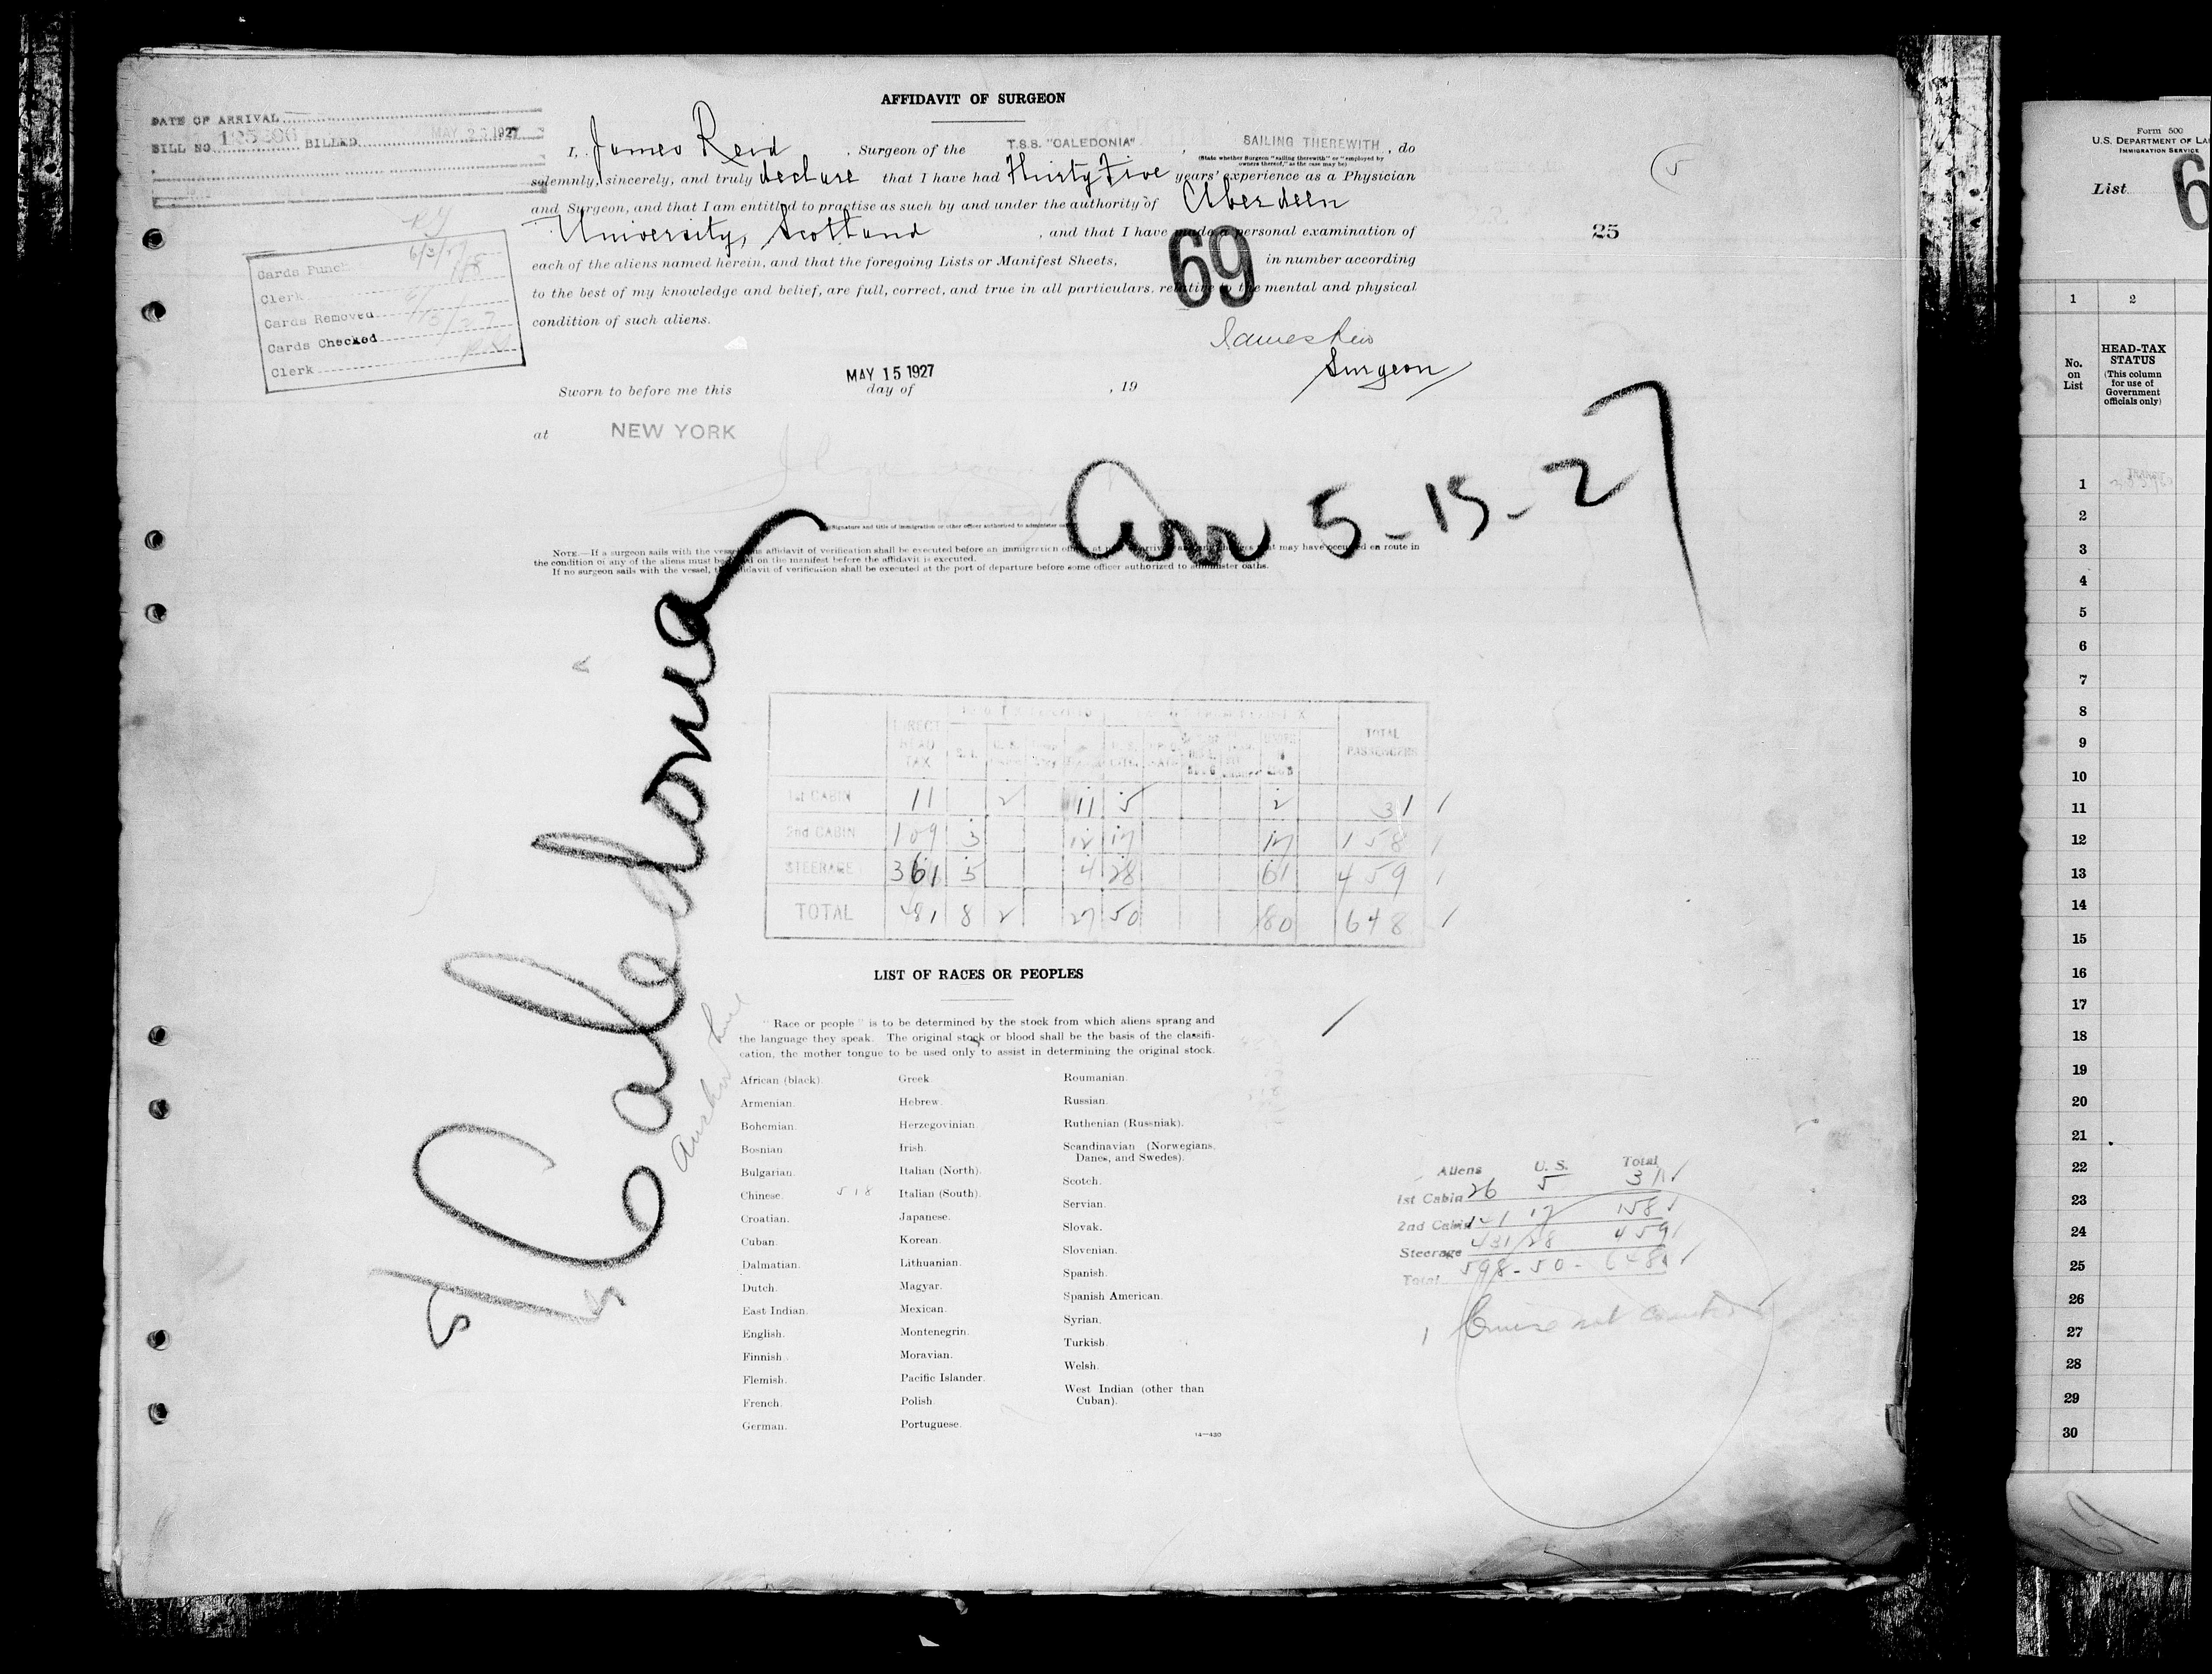 AFFIDAVIT OF SURGEON
DATE OF ARRIVAL
BILL NO. BILLED MAY 1927
I, James Reid, Surgeon of the T.S.S. "CALEDONIA", SAILING THEREWITH, do
(State whether Surgeon "sailing therewith" or "employed by owners thereof," as the case may be)
solemnly, sincerely, and truly declare that I have had Thirty Five years' experience as a Physician
and Surgeon, and that I am entitled to practise as such by and under the authority of Aberdeen
University, Scotland, and that I have made a personal examination of
25
each of the aliens named herein, and that the foregoing Lists or Manifest Sheets, 69 in number according
to the best of my knowledge and belief, are full, correct, and true in all particulars, relative to the mental and physical
condition of such aliens.
Cards Punch
Clerk
Cards Removed
Cards Checked
Clerk
James Reid
Surgeon
Sworn to before me this MAY 15 1927 day of , 19
at NEW YORK
Arr 5-15-27
(Signature and title of immigration or other officer authorized to administer
NOTE.—If a surgeon sails with the vessel, this affidavit of verification shall be executed before an immigration officer at port of arrival and any changes that may have occurred en route in
the condition of any of the aliens must be noted on the manifest before the affidavit is executed.
If no surgeon sails with the vessel, the affidavit of verification shall be executed at the port of departure before some officer authorized to administer oaths.
Caledonia
Anchor Line
DIRECT HEAD TAX
TOTAL PASSENGERS
1st CABIN 11 2 11 5 2 31
2nd CABIN 109 3 12 17 17 158
STEERAGE 361 5 4 28 61 459
TOTAL 481 8 2 27 50 80 648
LIST OF RACES OR PEOPLES
"Race or people" is to be determined by the stock from which aliens sprang and
the language they speak. The original stock or blood shall be the basis of the classifi-
cation, the mother tongue to be used only to assist in determining the original stock.
African (black).
Armenian.
Bohemian.
Bosnian
Bulgarian.
Chinese. 518
Croatian.
Cuban.
Dalmatian.
Dutch.
East Indian.
English.
Finnish.
Flemish.
French.
German.
Greek
Hebrew.
Herzegovinian
Irish.
Italian (North).
Italian (South).
Japanese.
Korean.
Lithuanian.
Magyar.
Mexican.
Montenegrin.
Moravian.
Pacific Islander.
Polish
Portuguese.
Roumanian.
Russian.
Ruthenian (Russniak).
Scandinavian (Norwegians,
Danes, and Swedes).
Scotch.
Servian.
Slovak.
Slovenian.
Spanish.
Spanish American.
Syrian.
Turkish.
Welsh.
West Indian (other than
Cuban).
14—430
Aliens U. S. Total
1st Cabin 26 5 31
2nd Cabin 141 17 158
Steerage 431 28 459
Total 598 - 50 - 648
Form 500
U.S. DEPARTMENT OF LA
IMMIGRATION SERVICE
List 6
1 2
No. on List
HEAD-TAX STATUS
(This column for use of Government officials only)
1
2
3
4
5
6
7
8
9
10
11
12
13
14
15
16
17
18
19
20
21
22
23
24
25
26
27
28
29
30